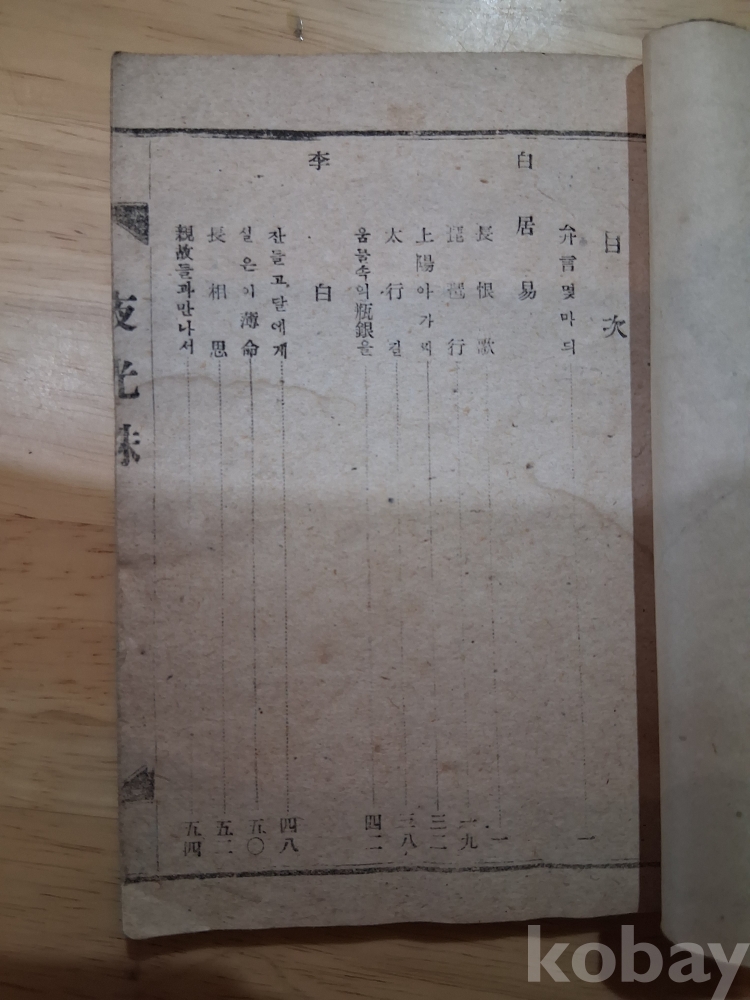 目次
弁言몇마듸 一
白居易
長恨歌 一
琵琶行 一九
上陽아가씨 三二
太行길 三八
움물속의瓶銀을 四二
李白
잔들고,달에게 四八
실은이薄命 五〇
長相思 五二
親故들과만나서 五四
夜光珠
kobay